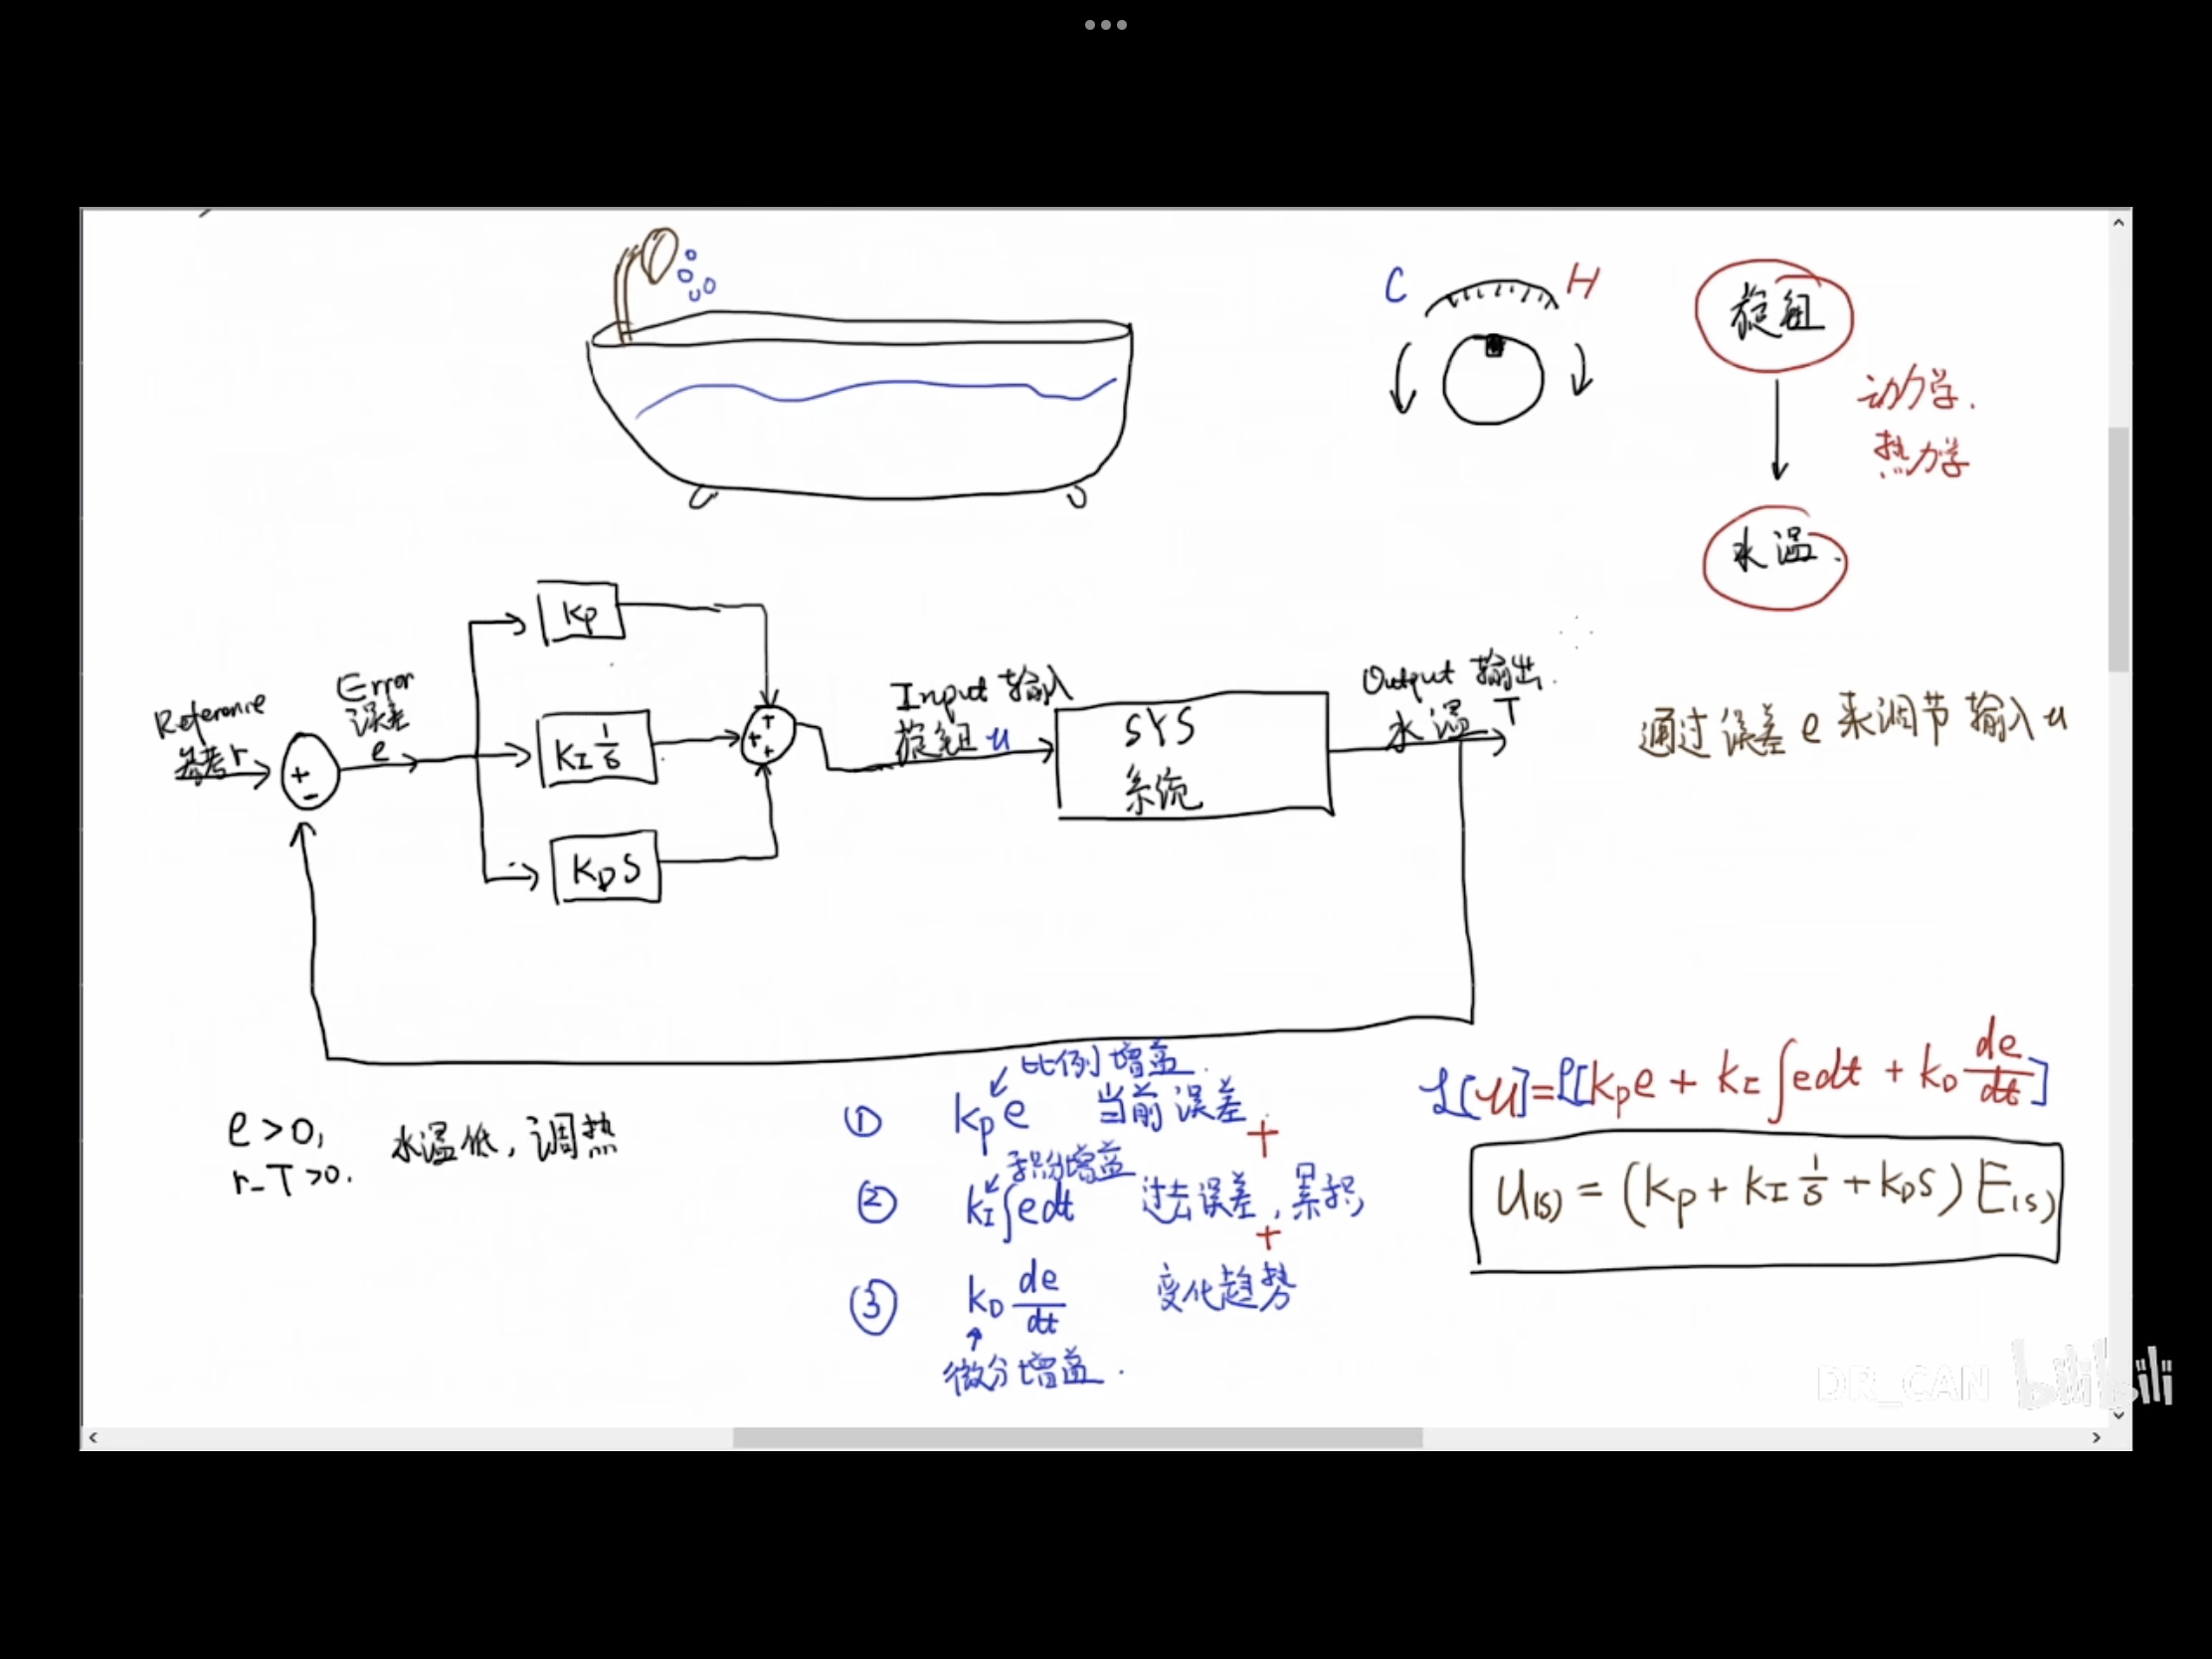 C
H
旋钮
动力学.
热力学
水温.
Kp
Reference
参考 r
Error
误差
e
+
-
KI 1/s
KD S
+
+
+
Input 输入
旋钮 u
SYS
系统
Output 输出.
水温 T
通过误差 e 来调节输入 u
e > 0,
r - T > 0.
水温低, 调热
比例增益.
① kp e 当前误差
+
积分增益
② kI ∫edt 过去误差, 累积
+
③ kD de/dt 变化趋势
微分增益.
ℒ[u] = ℒ[kp e + kI ∫edt + kD de/dt]
U(s) = (kp + kI 1/s + kD s) E(s)
DR_CAN bilibili